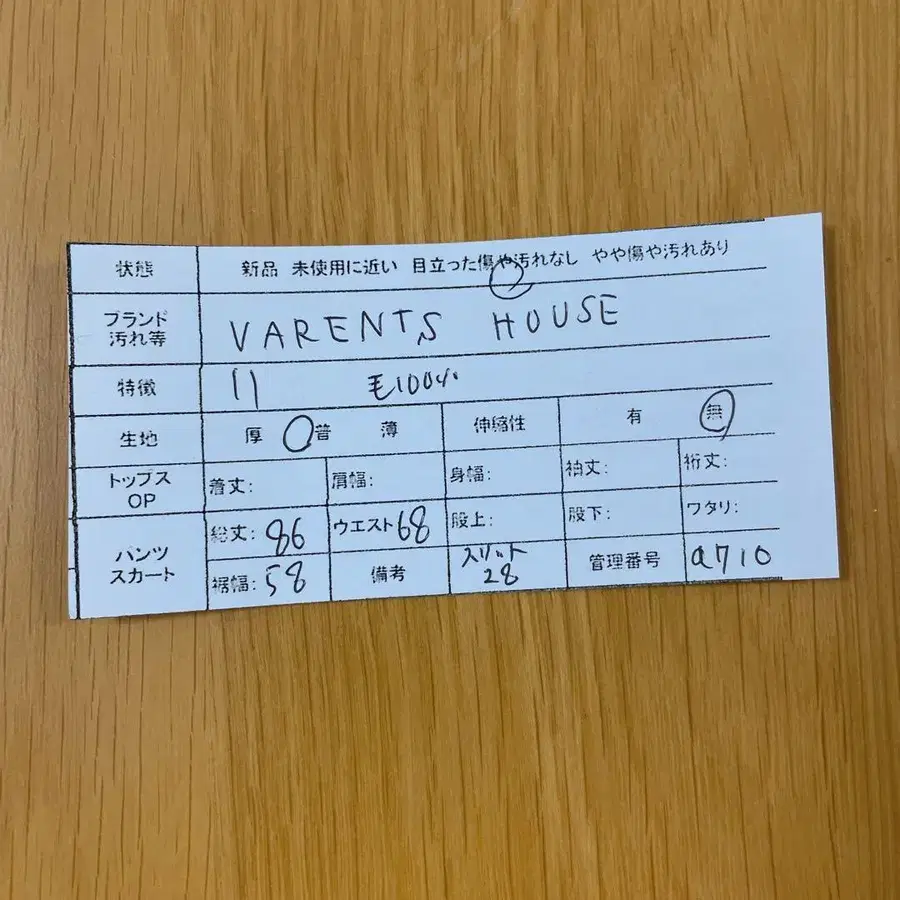 状態 新品 未使用に近い 目立った傷や汚れなし やや傷や汚れあり
ブランド
汚れ等 VARENTS HOUSE
特徴 11 毛100%
生地 厚 普 薄 伸縮性 有 無
トップス
OP 着丈: 肩幅: 身幅: 袖丈: 裄丈:
パンツ
スカート 総丈: 86 ウエスト 68 股上: 股下: ワタリ:
裾幅: 58 備考 スリット
28 管理番号 a710